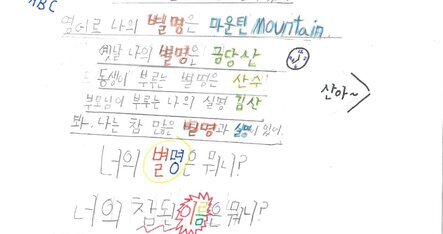 ABC
영어로 나의 별명은 마운틴 mountain.
옛날 나의 별명은 금당산
동생이 부르는 별명은 산수
부모님이 부르는 나의 실명 김산
산아~
봐. 나는 참 많은 별명과 실명이 있어.
너의 별명은 뭐니?
너의 참된 이름은 뭐니?